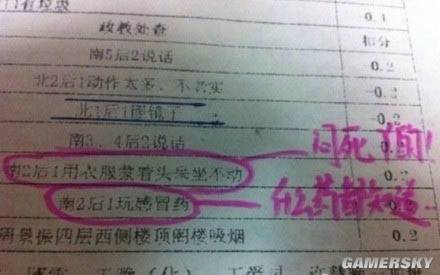 政教处查 扣分
南5后2说话 0.2
北2后1动作太多、不老实 -0.2
北1后1照镜子 0.2
南3、4后2说话 0.2
南2后1用衣服蒙着头呆坐不动
闷死了自!
南2后1玩感冒药
什么药都知道
胡景振四层西侧楼顶阁楼吸烟 0.2
GAMERSKY